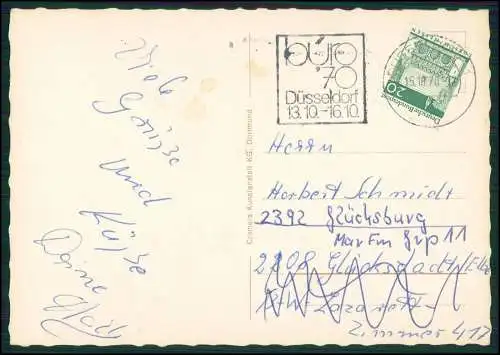 Viele
Grüsse
und
Küsse
Deine
büro
'70
Düsseldorf
13.10.-16.10.
15.10.70
Deutsche Bundespost
20
Cramers Kunstanstalt KG, Dortmund
Herrn
Herbert Schmidt
2392 Glücksburg
MarFm Grp 11
2208 Glückstadt/Elbe
Lazarett
Zimmer 417